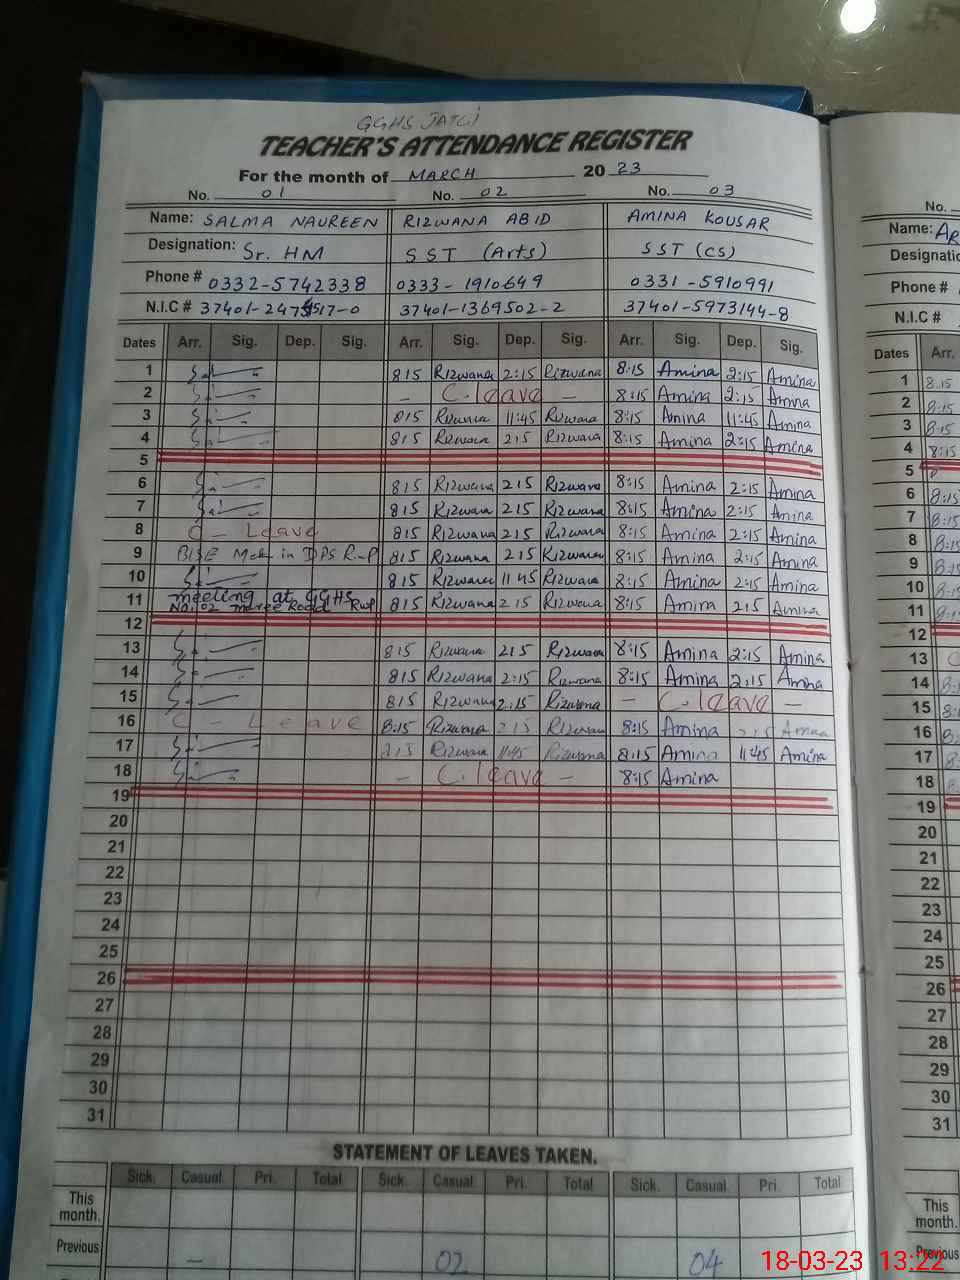 GGHS JATLI
TEACHER'S ATTENDANCE REGISTER
For the month of MARCH 2023
No. 01 No. 02 No. 03
Name: SALMA NAUREEN RIZWANA ABID AMINA KOUSAR
Designation: Sr. HM SST (Arts) SST (CS)
Phone # 0332-5742338 0333-1910649 0331-5910991
N.I.C # 37401-1369502-2 37401-5973144-8
Dates Arr. Sig. Dep. Sig. Arr. Sig. Dep. Sig. Arr. Sig. Dep. Sig.
1 815 Rizwana 2:15 Rizwana 8:15 Amina 2:15 Amina
2 - C. leave - 8:15 Amina 2:15 Amina
3 815 Rizwana 11:45 Rizwana 8:15 Amina 11:45 Amina
4 815 Rizwana 215 Rizwana 8:15 Amina 2:15 Amina
5
6 815 Rizwana 215 Rizwana 8:15 Amina 2:15 Amina
7 815 Rizwana 215 Rizwana 8:15 Amina 2:15 Amina
8 C - Leave 815 Rizwana 215 Rizwana 8:15 Amina 2:15 Amina
9 BISE in DPS 815 Rizwana 215 Rizwana 8:15 Amina 2:15 Amina
10 815 Rizwana 1145 Rizwana 8:15 Amina 2:15 Amina
11 meeting at GGHS No. 02 Road Rwp 815 Rizwana 215 Rizwana 8:15 Amina 215 Amina
12
13 815 Rizwana 215 Rizwana 8:15 Amina 2:15 Amina
14 815 Rizwana 2:15 Rizwana 8:15 Amina 2:15 Amina
15 815 Rizwana 2:15 Rizwana - C. leave -
16 C - Leave 8:15 Rizwana 215 Rizwana 8:15 Amina Amina
17 815 Rizwana 1145 Rizwana 8:15 Amina 1145 Amina
18 - C. leave - 8:15 Amina
19
20
21
22
23
24
25
26
27
28
29
30
31
STATEMENT OF LEAVES TAKEN.
Sick. Casual. Pri. Total Sick. Casual. Pri. Total Sick. Casual. Pri. Total
This month.
Previous - 02 04
No.
Name:
Phone #
N.I.C #
Dates Arr.
1 8:15
2 8:15
3 8:15
4 8:15
5
6 8:15
7 8:15
8 8:15
9 8:15
10 8:15
11 8:15
12
13
14 8:15
15 8:15
16
17
18
19
20
21
22
23
24
25
26
27
28
29
30
31
This month.
Previous
18-03-23 13:22